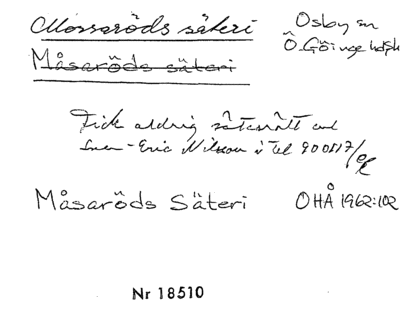 Mossaröds säteri
Osby sn
Ö. Göinge hdsk
Måsaröds säteri
Fick aldrig säterirätt enl
Sven-Eric Nilsson i tel 900817/
Måsaröds Säteri
OHÅ 1962:102
Nr 18510